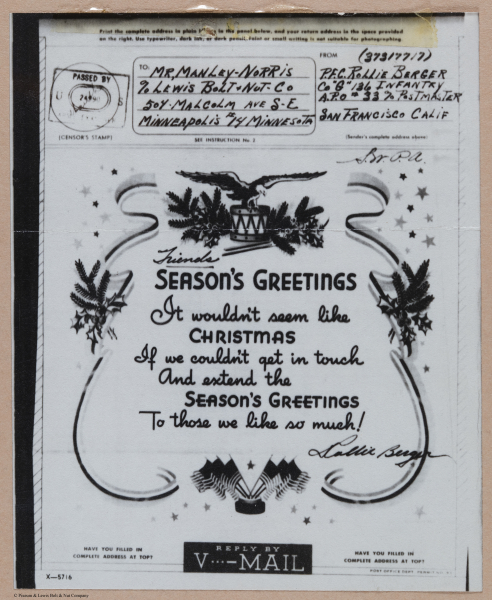 Print the complete address in plain in the panel below, and your return address in the space provided
on the right. Use typewriter, dark ink, or dark pencil. Faint or small writing is not suitable for photographing.
PASSED BY
U S
(CENSOR'S STAMP)
TO:
MR. MANLEY-NORRIS
% LEWIS BOLT-NUT-CO
504-MALCOLM AVE S-E
MINNEAPOLIS #14 MINNESOTA
SEE INSTRUCTION No. 2
FROM (37317717)
P.F.C. ROLLIE BERGER
Co "G" 136 INFANTRY
A.P.O # 33 % POSTMASTER
SAN FRANCISCO CALIF
(Sender's complete address above)
Friends
SEASON'S GREETINGS
It wouldn't seem like
CHRISTMAS
If we couldn't get in touch
And extend the
SEASON'S GREETINGS
To those we like so much!
Rollie Berger
HAVE YOU FILLED IN
COMPLETE ADDRESS AT TOP?
REPLY BY
V···—MAIL
HAVE YOU FILLED IN
COMPLETE ADDRESS AT TOP?
X—5716
POST OFFICE DEPT.
© Putnam & Lewis Bolt & Nut Company